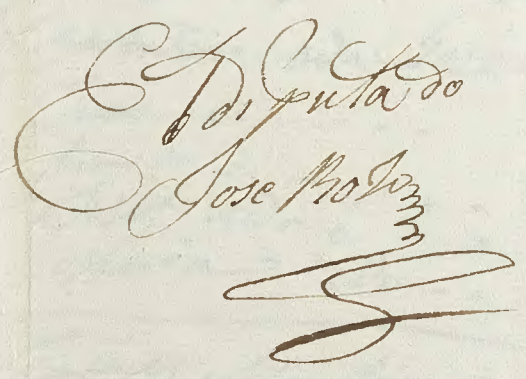 El diputado
Jose Rolo